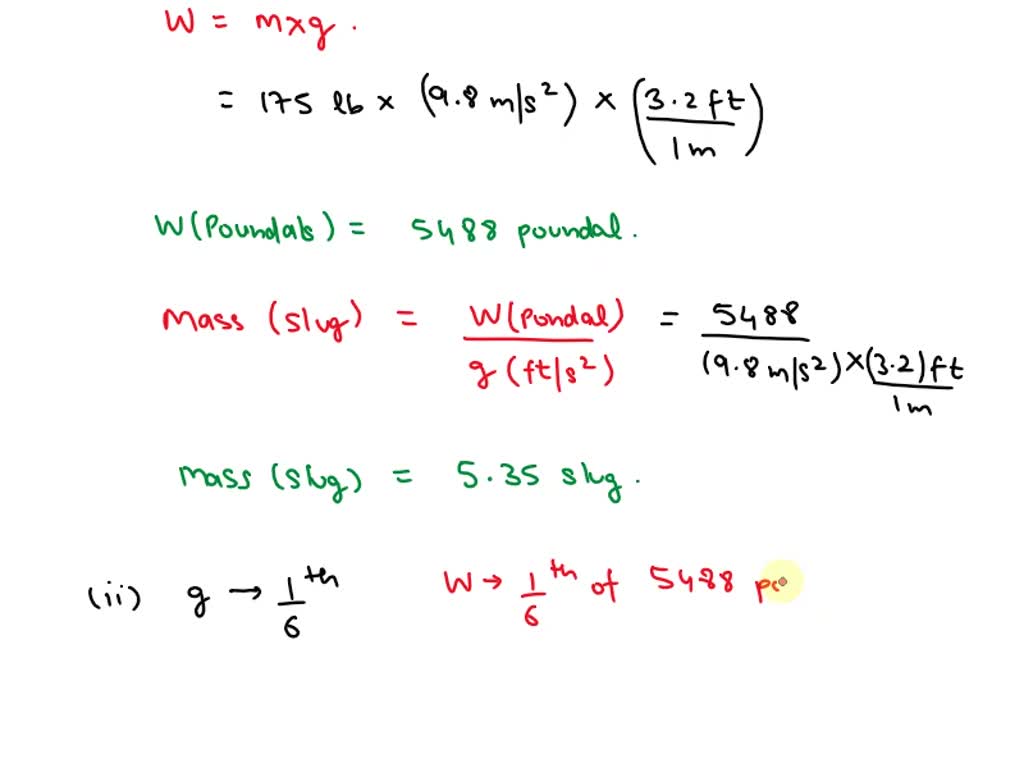 W = m×g.
= 175 lb × (9.8 m/s²) × (3.2 ft / 1m)
W(Poundals) = 5488 poundal.
Mass (Slug) = W(Pondal) / g(ft/s²) = 5488 / (9.8 m/s²) × (3.2) ft / 1m
Mass (Slug) = 5.35 slug.
(ii) g → 1/6 th W → 1/6 th of 5488 po